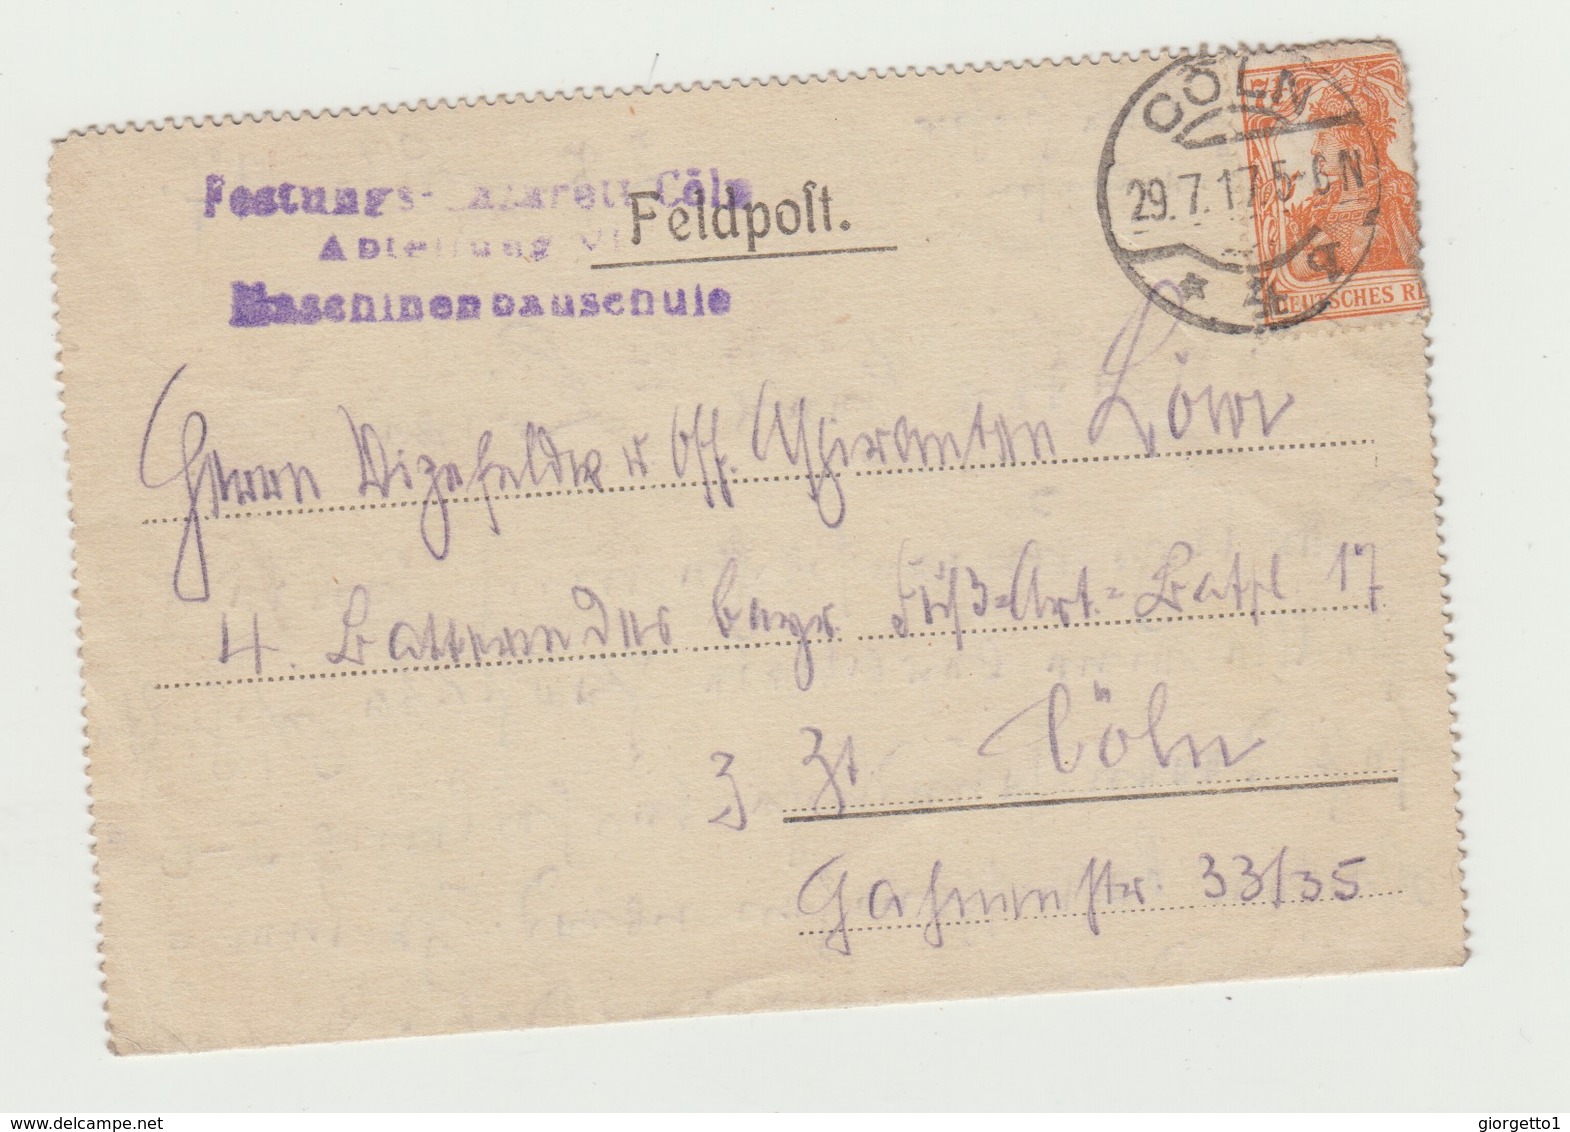 Festungs-Lazarett Cöln
Abteilung VI
Maschinenbauschule
Feldpost.
CÖLN
29.7.17.5-6N
* 4 q
7 7
DEUTSCHES RE
Herrn Vizefeldw u Off. Aspiranten Löw
4. Batterie des bayr. Fuß-Art.-Batl 17
z Zt Cöln
str. 33/35
giorgetto1